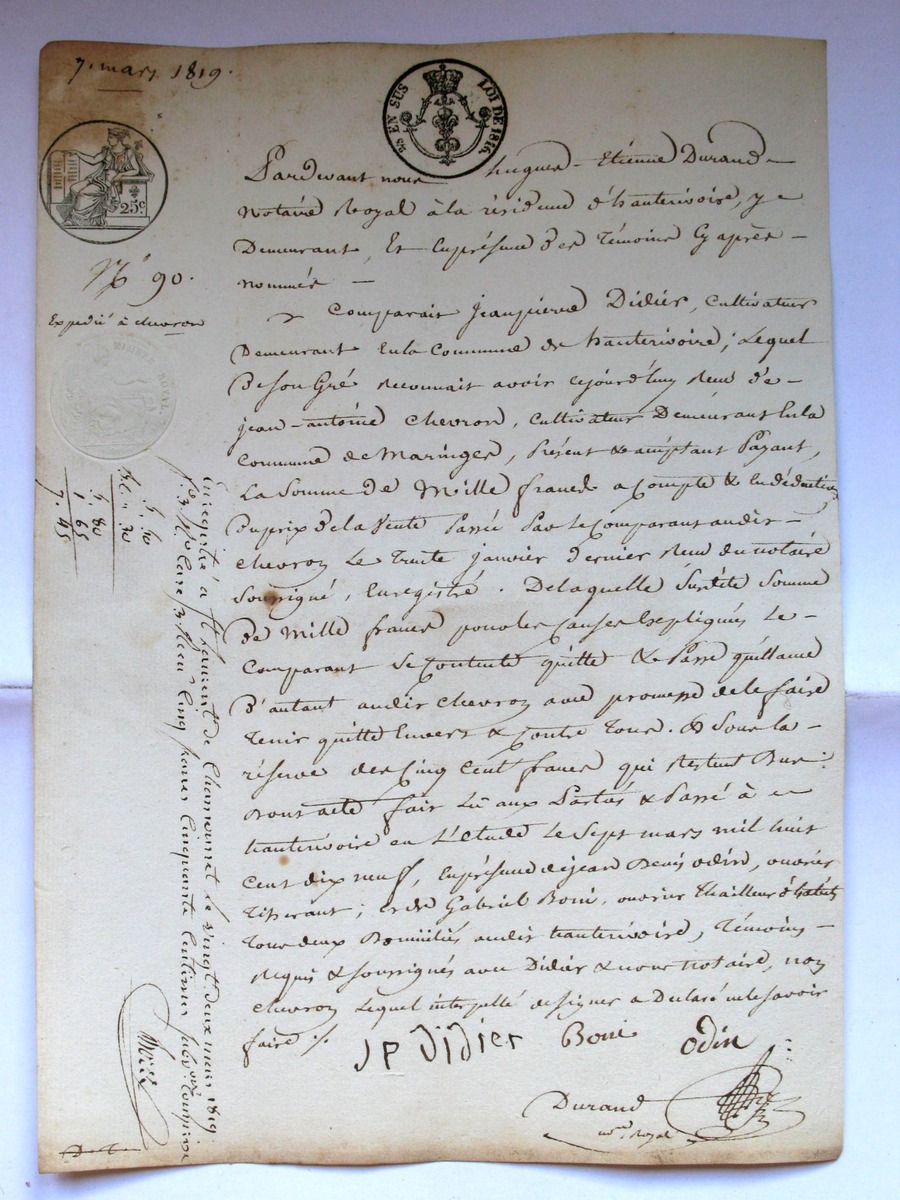 7. mars 1819.
EN SUS LOI DE 1816.
25c
No 90.
Expedié à chevron
ROYAL
Pardevant nous hugues-Etienne Durand
Notaire Royal à la résidence d'hauterivoire, y
Demeurant, Et Enprésence des Témoins Cy après
nommés
Comparait jeanpierre Didier, Cultivateur
Demeurant Enla Commune de hauterivoire; Lequel
De son Gré reconnait avoir cejourd'huy Reçu de
jean-antoine Chevron, Cultivateur Demeurant Enla
Commune de Maringes, Présent & acceptant Payant,
La Somme De Mille francs a Compte & En déduction
Duprix De la Vente Passée Par le Comparant audit
Chevron Le Trente janvier Dernier Reçu du notaire
Soussigné, Enregistré. De laquelle Susdite Somme
De Mille francs pour les Causes Expliqués Le
Comparant Se Contente quitte & Passe quittance
D'autant audit Chevron avec promesse de le faire
Tenir quitte Envers & Contre Tous. & Sous la
réserve des Cinq Cent francs qui Restent Dus:
Dont acte fait Lû aux Parties & Passé à
hauterivoire en L'étude Le Sept mars mil huit
Cent dix neuf, Enprésence de jean Denis Odin, ouvrier
Tisserant; et de Gabriel Boni, ouvrier Thailleur d'habits
Tous deux Domiciliés audit hauterivoire, Témoins
Requis & Soussignés avec Didier & nous notaire, non
Chevron Lequel interpellé de signer a Declaré ne le Savoir
faire ./.
JP Didier Boni Odin
Durand
no.re Royal
5. 50
5. 80
1. 65
7. 45
Enregistré à St Laurent de Chamousset le vingt deux mars 1819
Reçu Cinq francs Cinquante Centimes